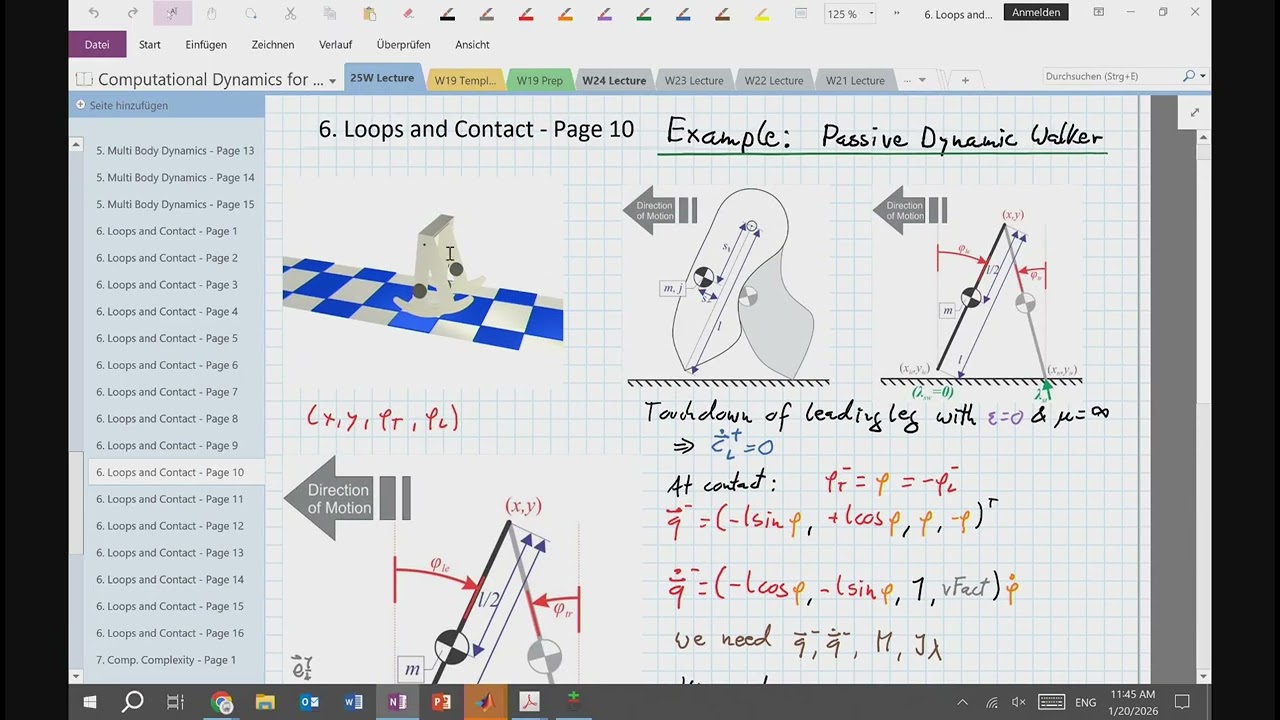 125 %
6. Loops and...
Anmelden
Datei
Start
Einfügen
Zeichnen
Verlauf
Überprüfen
Ansicht
Computational Dynamics for ...
25W Lecture
W19 Templ...
W19 Prep
W24 Lecture
W23 Lecture
W22 Lecture
W21 Lecture
...
Durchsuchen (Strg+E)
Seite hinzufügen
5. Multi Body Dynamics - Page 13
5. Multi Body Dynamics - Page 14
5. Multi Body Dynamics - Page 15
6. Loops and Contact - Page 1
6. Loops and Contact - Page 2
6. Loops and Contact - Page 3
6. Loops and Contact - Page 4
6. Loops and Contact - Page 5
6. Loops and Contact - Page 6
6. Loops and Contact - Page 7
6. Loops and Contact - Page 8
6. Loops and Contact - Page 9
6. Loops and Contact - Page 10
6. Loops and Contact - Page 11
6. Loops and Contact - Page 12
6. Loops and Contact - Page 13
6. Loops and Contact - Page 14
6. Loops and Contact - Page 15
6. Loops and Contact - Page 16
7. Comp. Complexity - Page 1
6. Loops and Contact - Page 10
Example: Passive Dynamic Walker
Direction
of Motion
m, j
l
Direction
of Motion
(x,y)
φle
l/2
φtr
m
l
(xle,yle)
(xtr,ytr)
(λsw=0)
(x, y, φT, φL)
Touchdown of leading leg with ε=0 & μ=∞
⇒ ċL⁺=0
At contact: φT⁻ = φ = -φL⁻
q⁻ = (-l sin φ, +l cos φ, φ, -φ)ᵀ
q̇⁻ = (-l cos φ, -l sin φ, 1, vFact) φ̇
we need q⁻, q̇⁻, M, Jλ
Direction
of Motion
(x,y)
φle
l/2
φtr
m
ENG
11:45 AM
1/20/2026